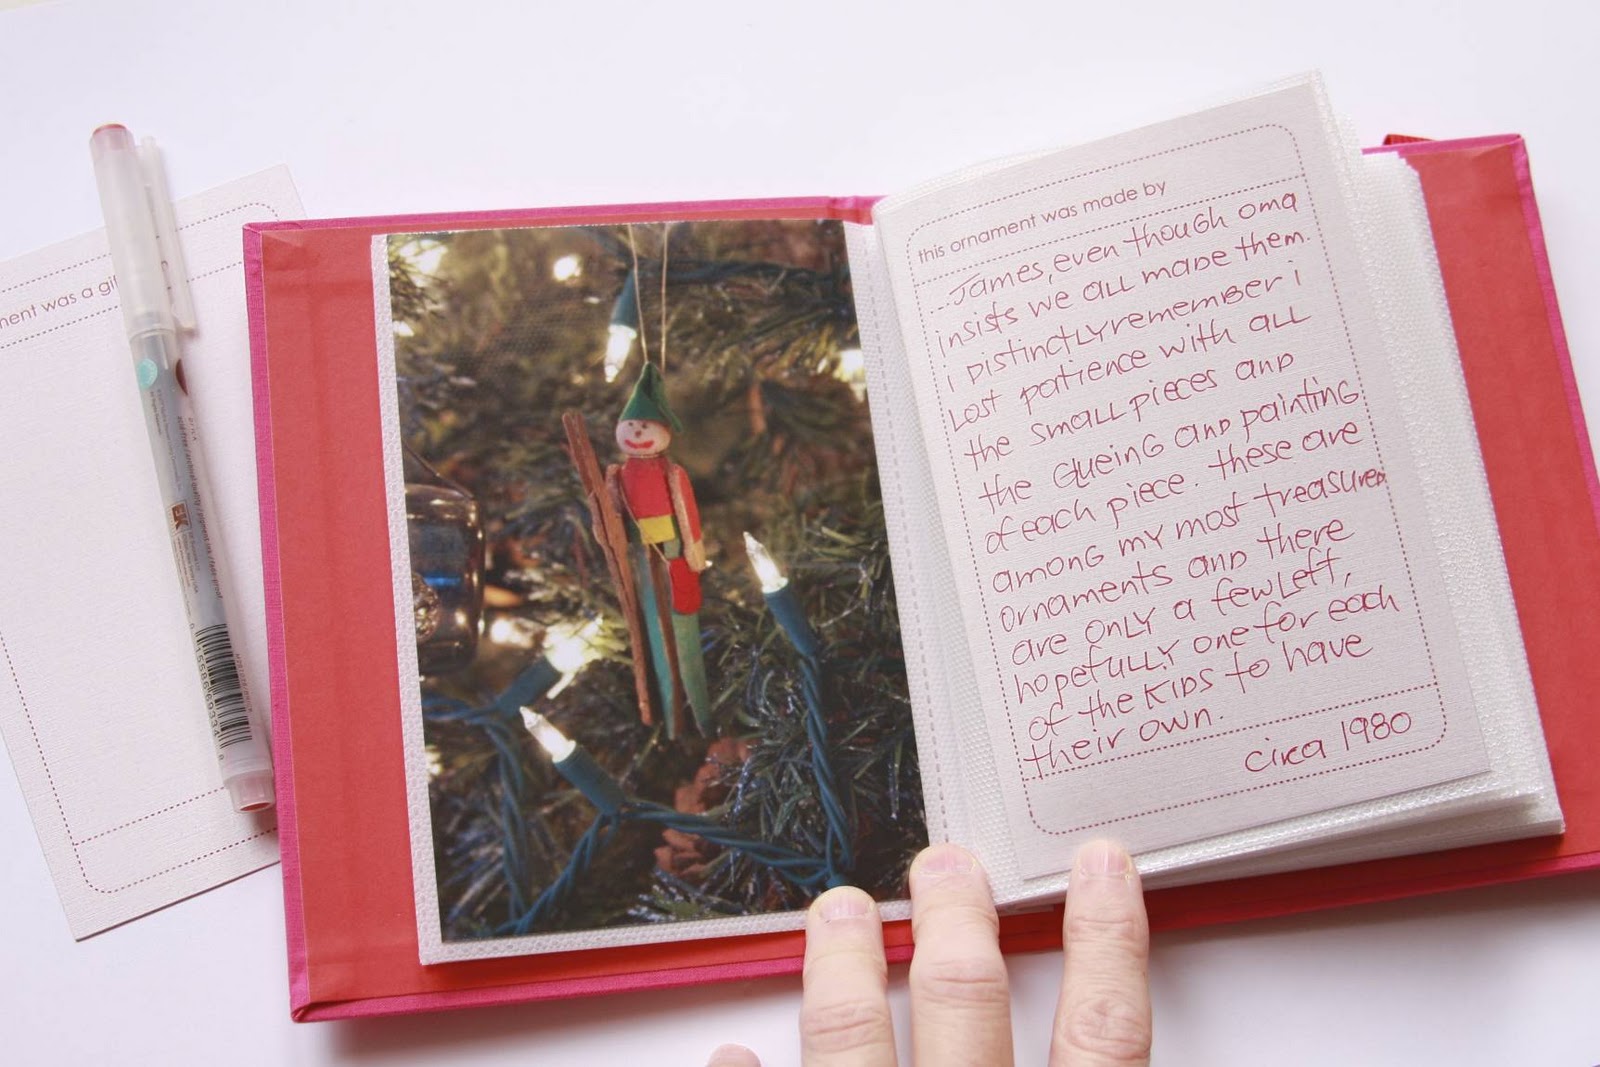 ment was a gif
this ornament was made by
James, even though oma
insists we all made them.
i distinctly remember i
Lost patience with all
the small pieces and
the glueing and painting
of each piece. these are
among my most treasured
ornaments and there
are only a few left,
hopefully one for each
of the kids to have
their own.
circa 1980
EK